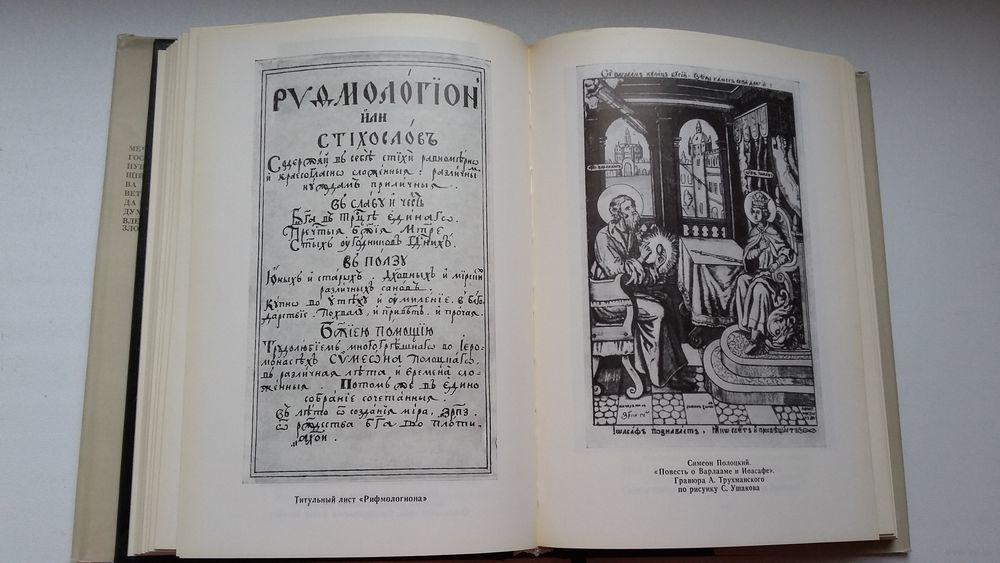 РИѲМОЛО́ГІОН
и҆лѝ
СТІХОСЛО́ВЪ
Содержѧй въ себѣ стіхѝ равномѣрнѡ
и҆ краесогласнѡ сложе́нныѧ. разли́чны
нꙋждамъ прили́чныѧ.
въ сла́вꙋ и҆ че́сть
Бг҃а въ трⷪ҇цѣ є҆ди́нагѡ.
Пречтⷭ҇ыѧ бж҃їѧ Мт҃ре
Ст҃ыхъ ᲂу҆го́дникѡвъ
въ по́лзꙋ
Ю҆ныхъ и҆ ста́рыхъ. дꙋхо́вныхъ и҆ мїрскі
разли́чныхъ санѡвъ.
Кꙋ́пнѡ во ᲂу҆тѣхꙋ и҆ ᲂу҆миле́ние. в бл҃го
дарствіе. Похвалꙋ, и҆ привѣт. и҆ прочаѧ.
Бж҃їею по́мощїю
Трꙋдолю́бїемъ многогрѣ́шнагѡ во Іеро-
монасѣхъ СѴМЕѠНА Полоцкагѡ,
въ разли́чнаѧ лѣ́та и҆ времена сло-
же́нныѧ. Пото́мъ же въ є҆ди́но
собра́нїе сочета́нныѧ.
Въ лѣ́то ѿ созда́нїѧ мі́ра, ҂ЗРПЗ.
ѿ рождества̀ бг҃а во пло́ти
҂аХОИ.
Титульный лист «Рифмологиона»
Іѡасафъ познаваетъ,
Симеон Полоцкий.
«Повесть о Варлааме и Иоасафе».
Гравюра А. Трухманского
по рисунку С. Ушакова
МЕ
ГОС
ПУІ
ЩІ
ВА
ВЕТ
ДА
ДУХ
ВЛЕ
ЗЛО